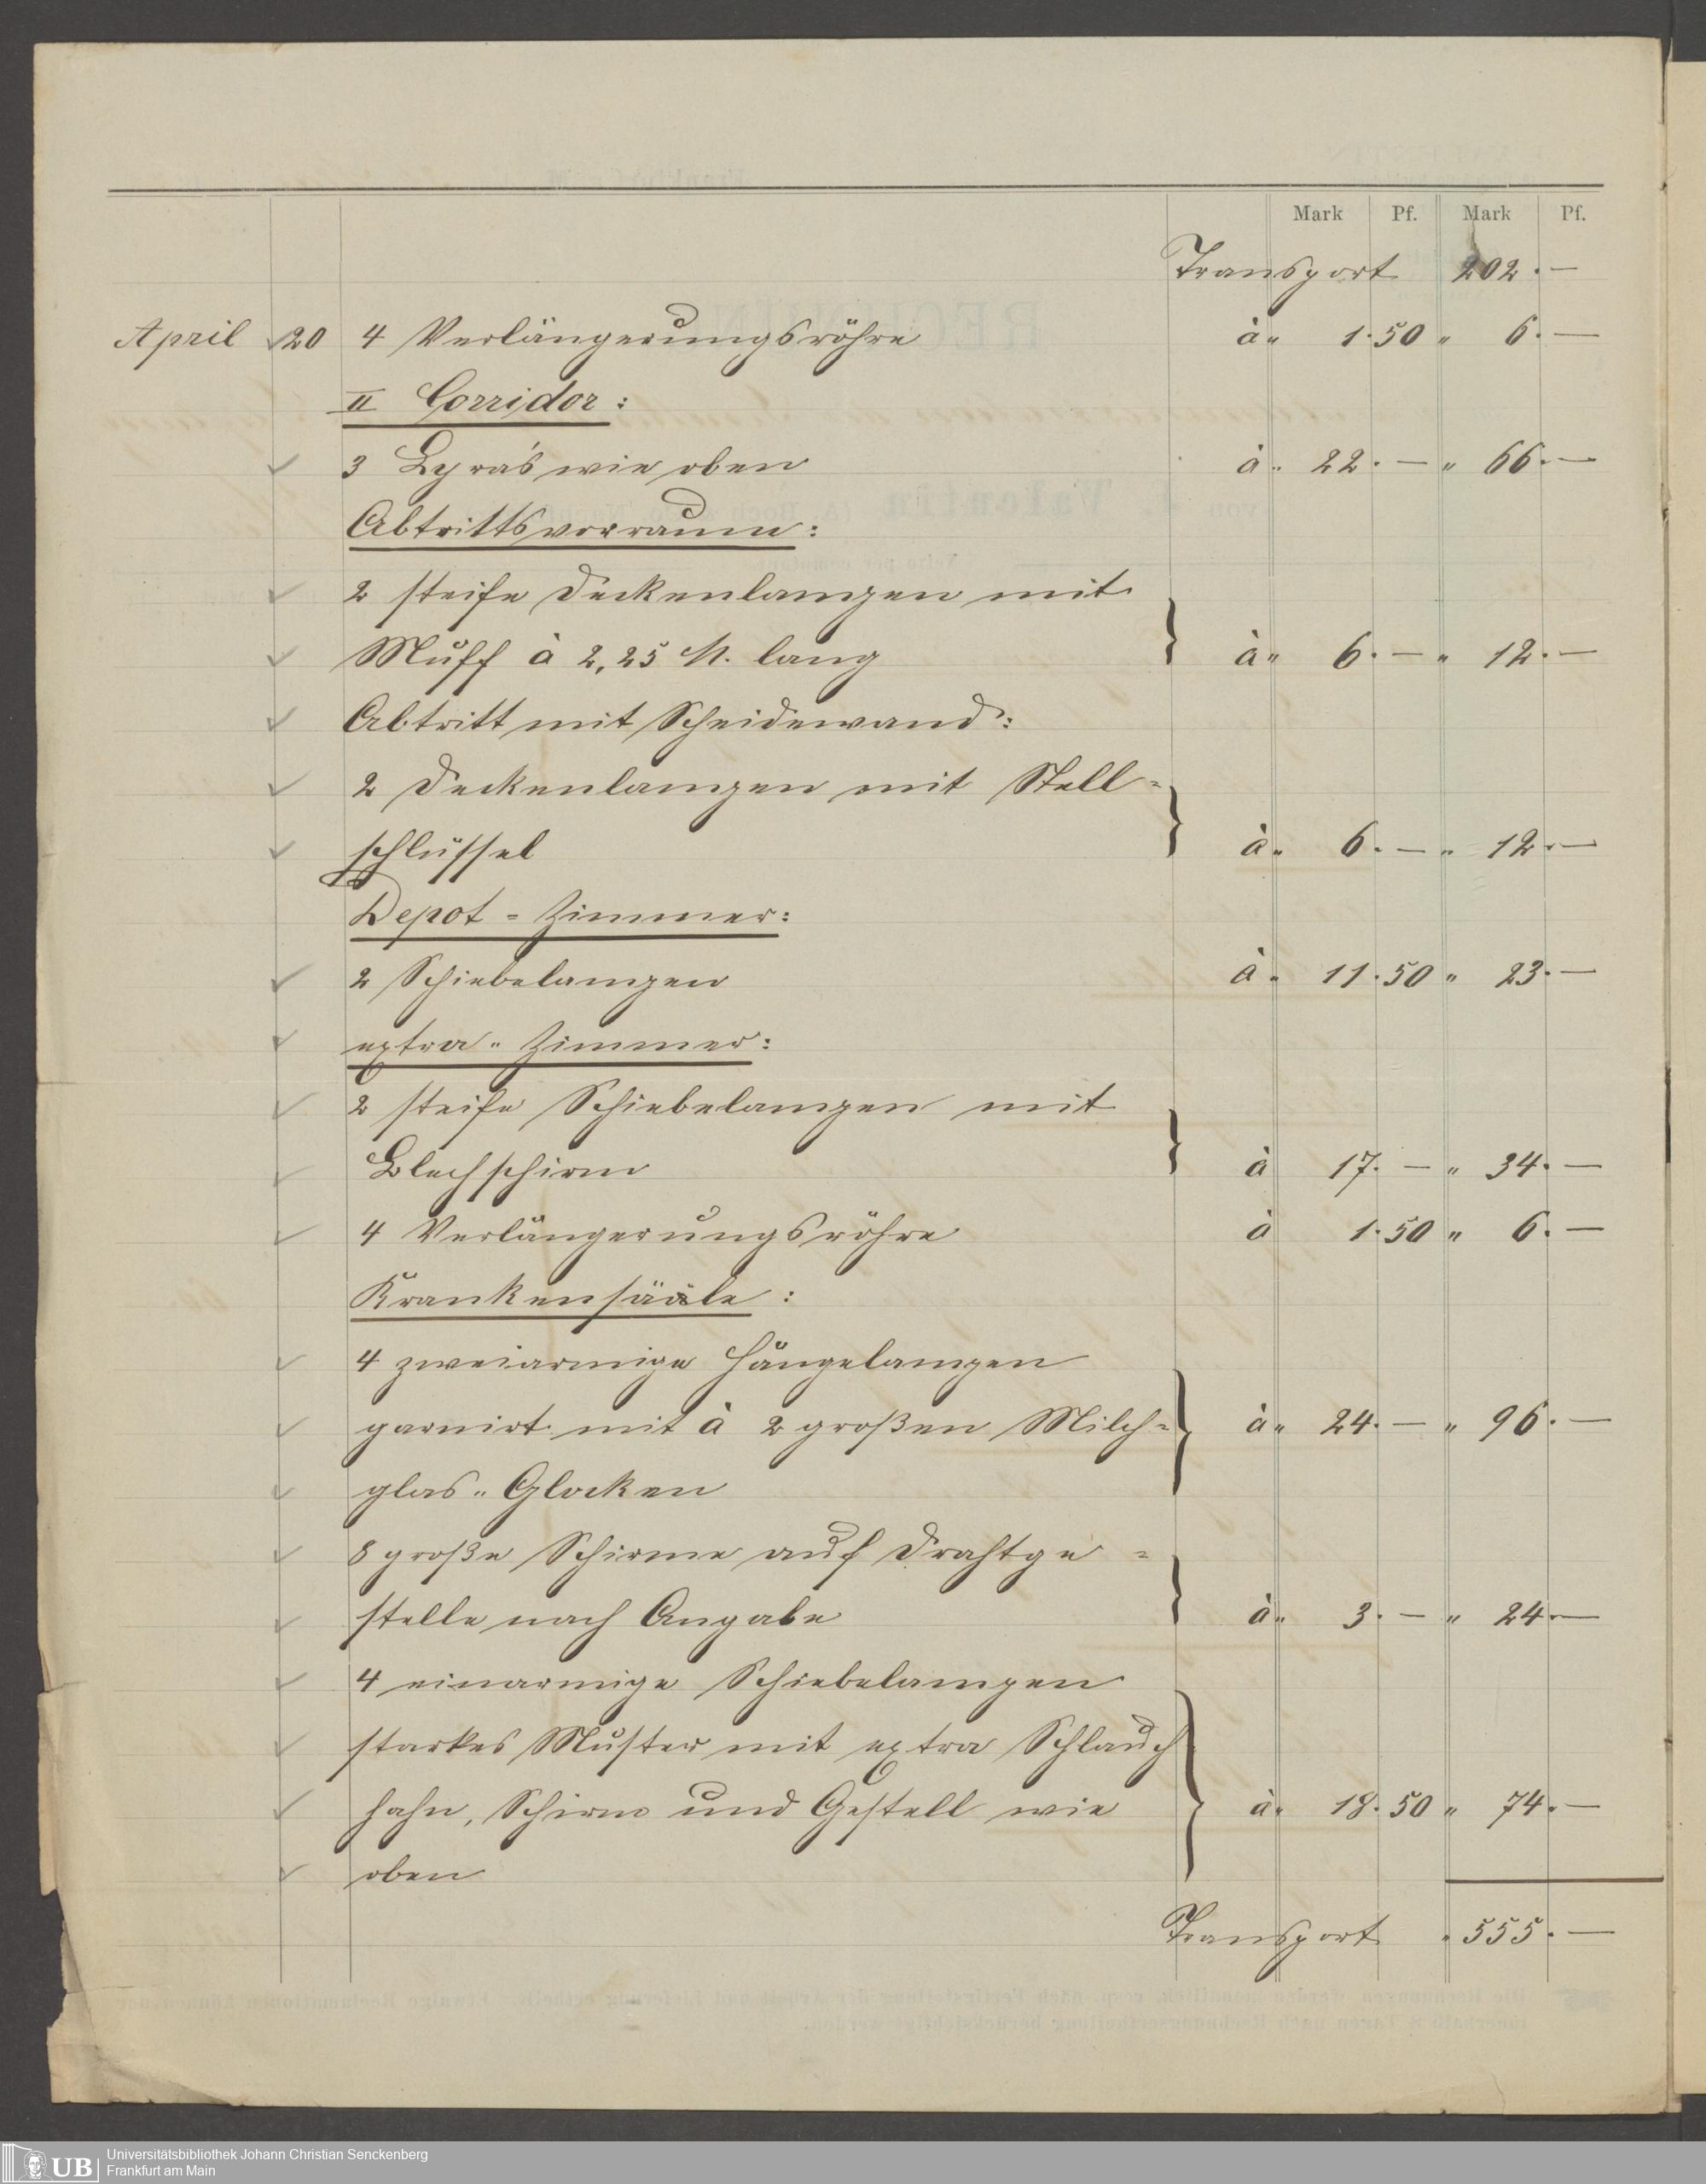 Mark Pf. Mark Pf.
Transport 202.—
April 20 4 Verlängerungsröhre à „ 1.50 „ 6.—
II Corridor:
3 Lyra's wie oben à „ 22.— „ 66.—
Abtrittsvorraum:
2 steife Deckenlampen mit
Muff à 2,25 M. lang à „ 6.— „ 12.—
Abtritt mit Scheidewand:
2 Deckenlampen mit Stell=
schlüssel à „ 6.— „ 12.—
Depot=Zimmer:
2 Schiebelampen à „ 11.50 „ 23.—
extra „ Zimmer:
2 steife Schiebelampen mit
Blechschirm à 17.— „ 34.—
4 Verlängerungsröhre à 1.50 „ 6.—
Krankensääle:
4 zweiarmige Hängelampen
garnirt mit à 2 großen Milch= à „ 24.— „ 96.—
glas „ Glocken
8 große Schirme auf Drahtge=
stelle nach Angabe à „ 3.— „ 24.—
4 einarmige Schiebelampen
starkes Muster mit extra Schlauch
hahn, Schirm und Gestell wie à „ 18.50 „ 74.—
oben
Transport „ 555.—
UB Universitätsbibliothek Johann Christian Senckenberg
Frankfurt am Main